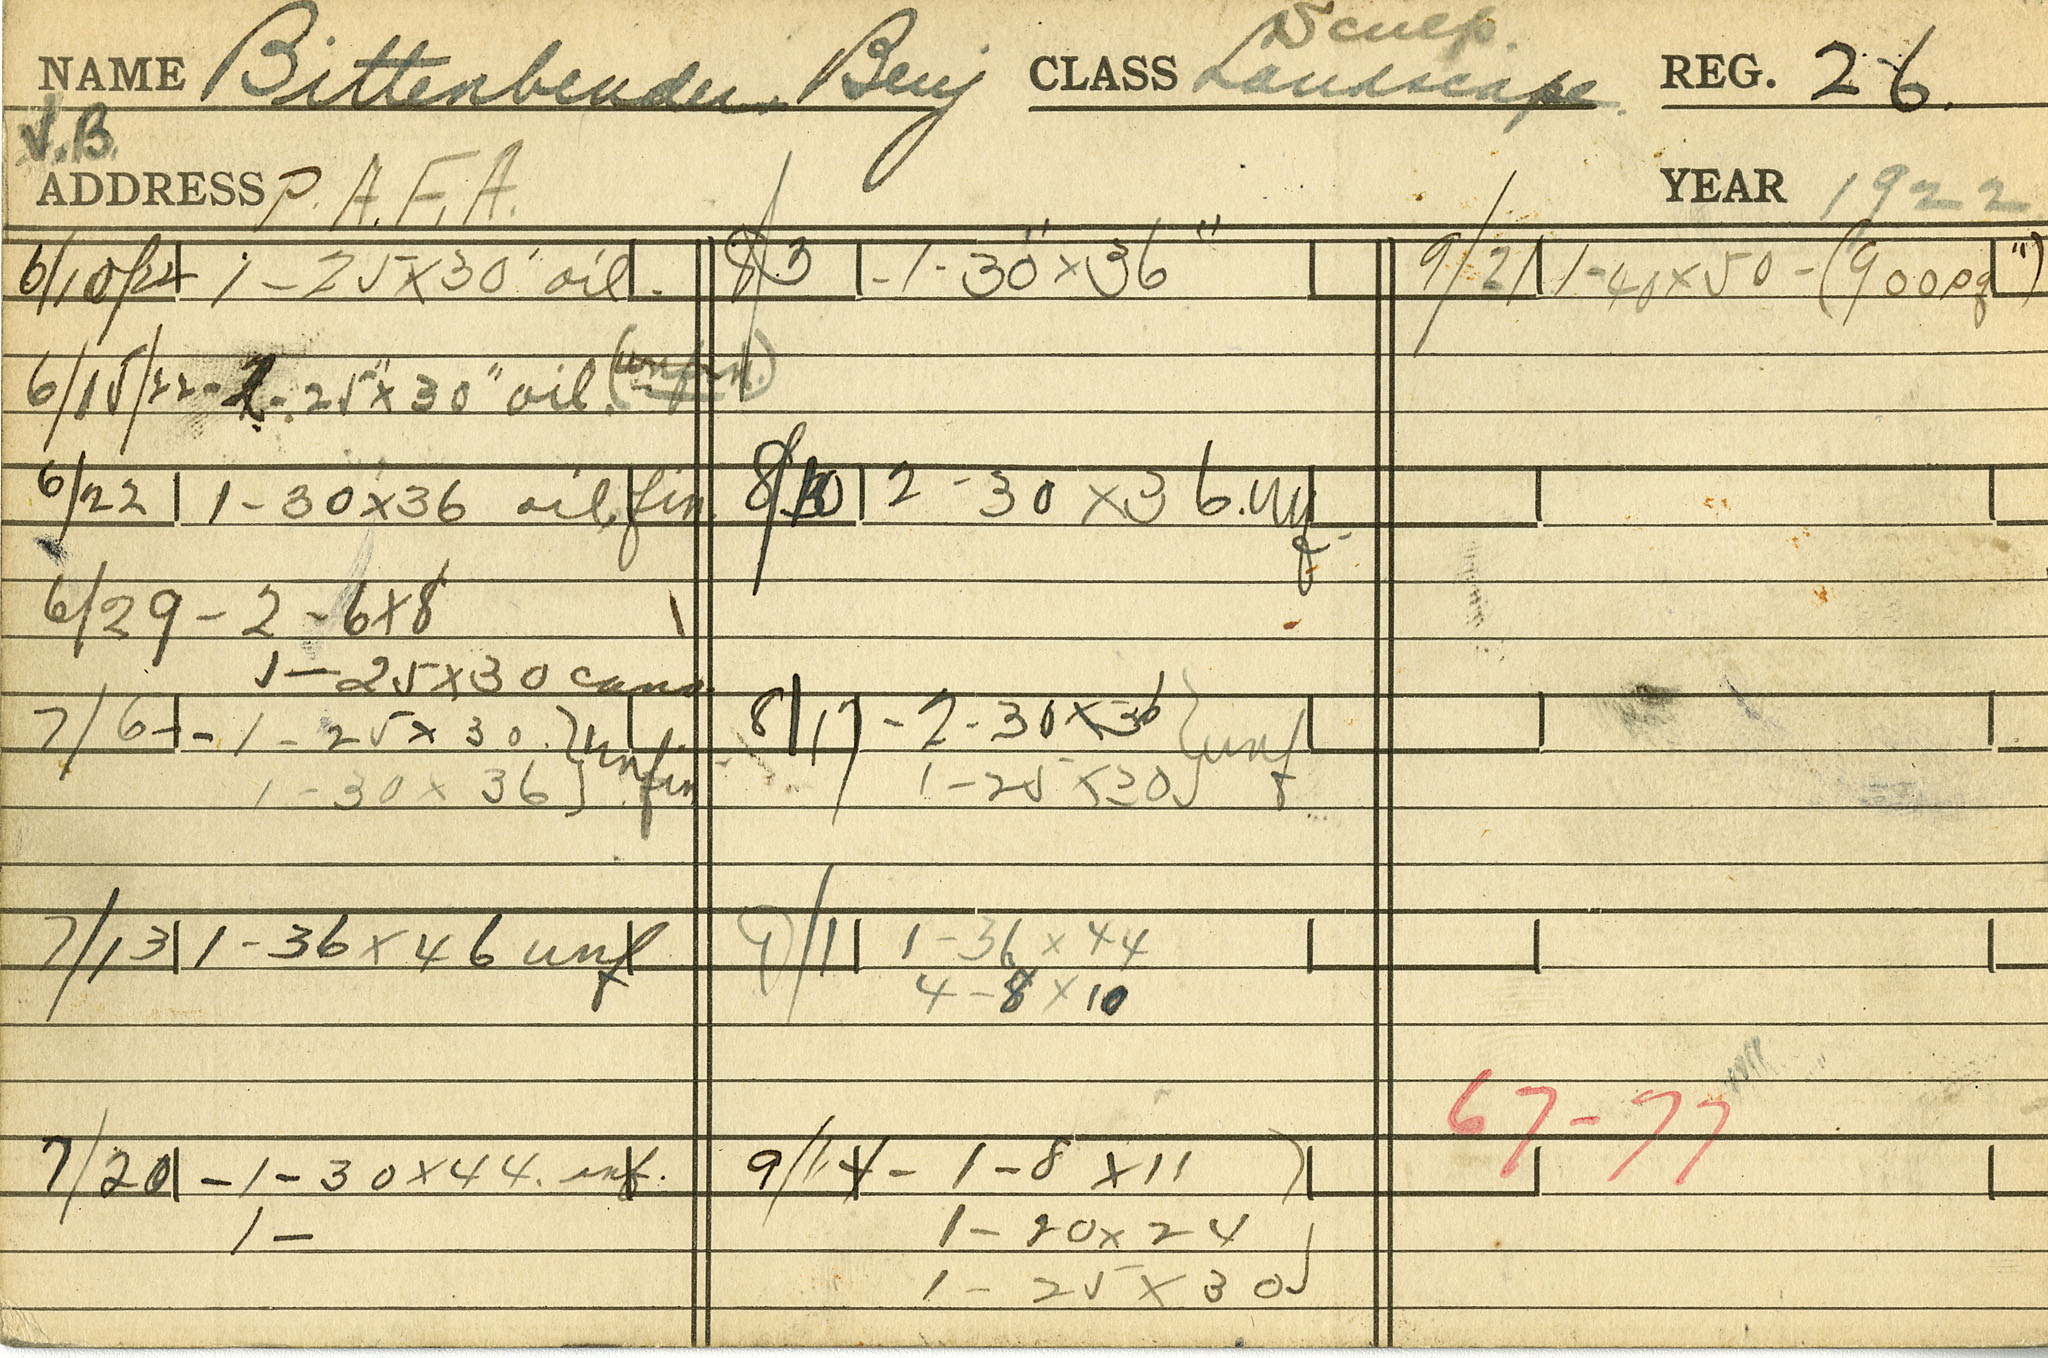 Sculp.
NAME Bittenbender Benj CLASS Landscape. REG. 26.
J.B.
ADDRESS P.A.F.A. YEAR 1922
6/10/22 1 - 25 x 30" oil.
6/15/22 - 2 - 25" x 30" oil. (unfin.)
6/22 1 - 30 x 36 oil, fin.
6/29 - 2 - 6 x 8
1 - 25 x 30 canv
7/6 - 1 - 25 x 30. } unfin.
1 - 30 x 36 }
7/13 1 - 36 x 46 unf
7/20 - 1 - 30 x 44. unf.
1 -
8/3 - 1 - 30" x 36"
8/10 2 - 30 x 36. unf.
8/17 - 2 - 30 x 36 } unf
1 - 25 x 30 }
9/1 1 - 36 x 44
4 - 8 x 10
9/14 - 1 - 8 x 11 }
1 - 20 x 24
1 - 25 x 30 }
9/21 1 - 40 x 50 - (900 sq ")
67-77